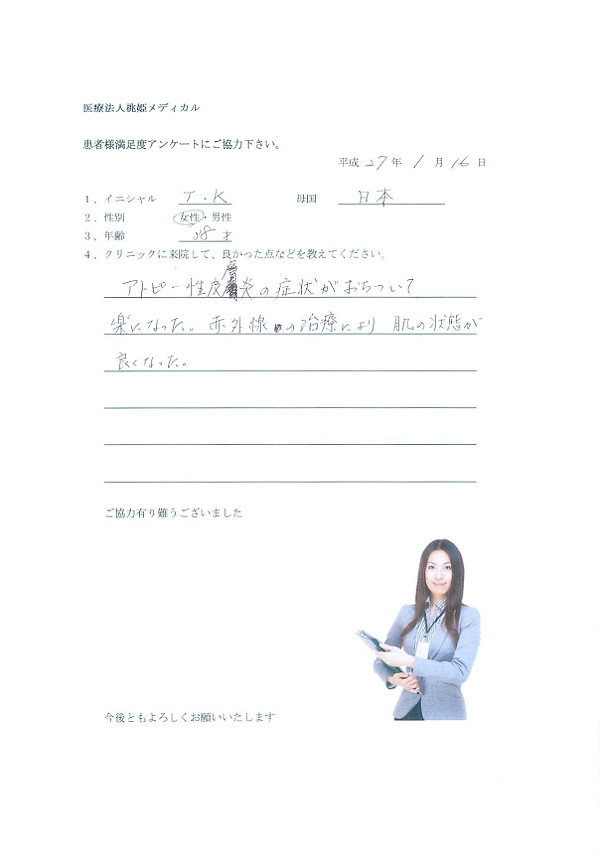 医療法人桃姫メディカル
患者様満足度アンケートにご協力下さい。
平成 27 年 1 月 16 日
1、イニシャル T.K 母国 日本
2、性別 女性・男性
3、年齢 38 才
4、クリニックに来院して、良かった点などを教えてください。
アトピー性皮膚炎の症状がおちついて
楽になった。赤外線の治療により 肌の状態が
良くなった。
ご協力有り難うございました
今後ともよろしくお願いいたします